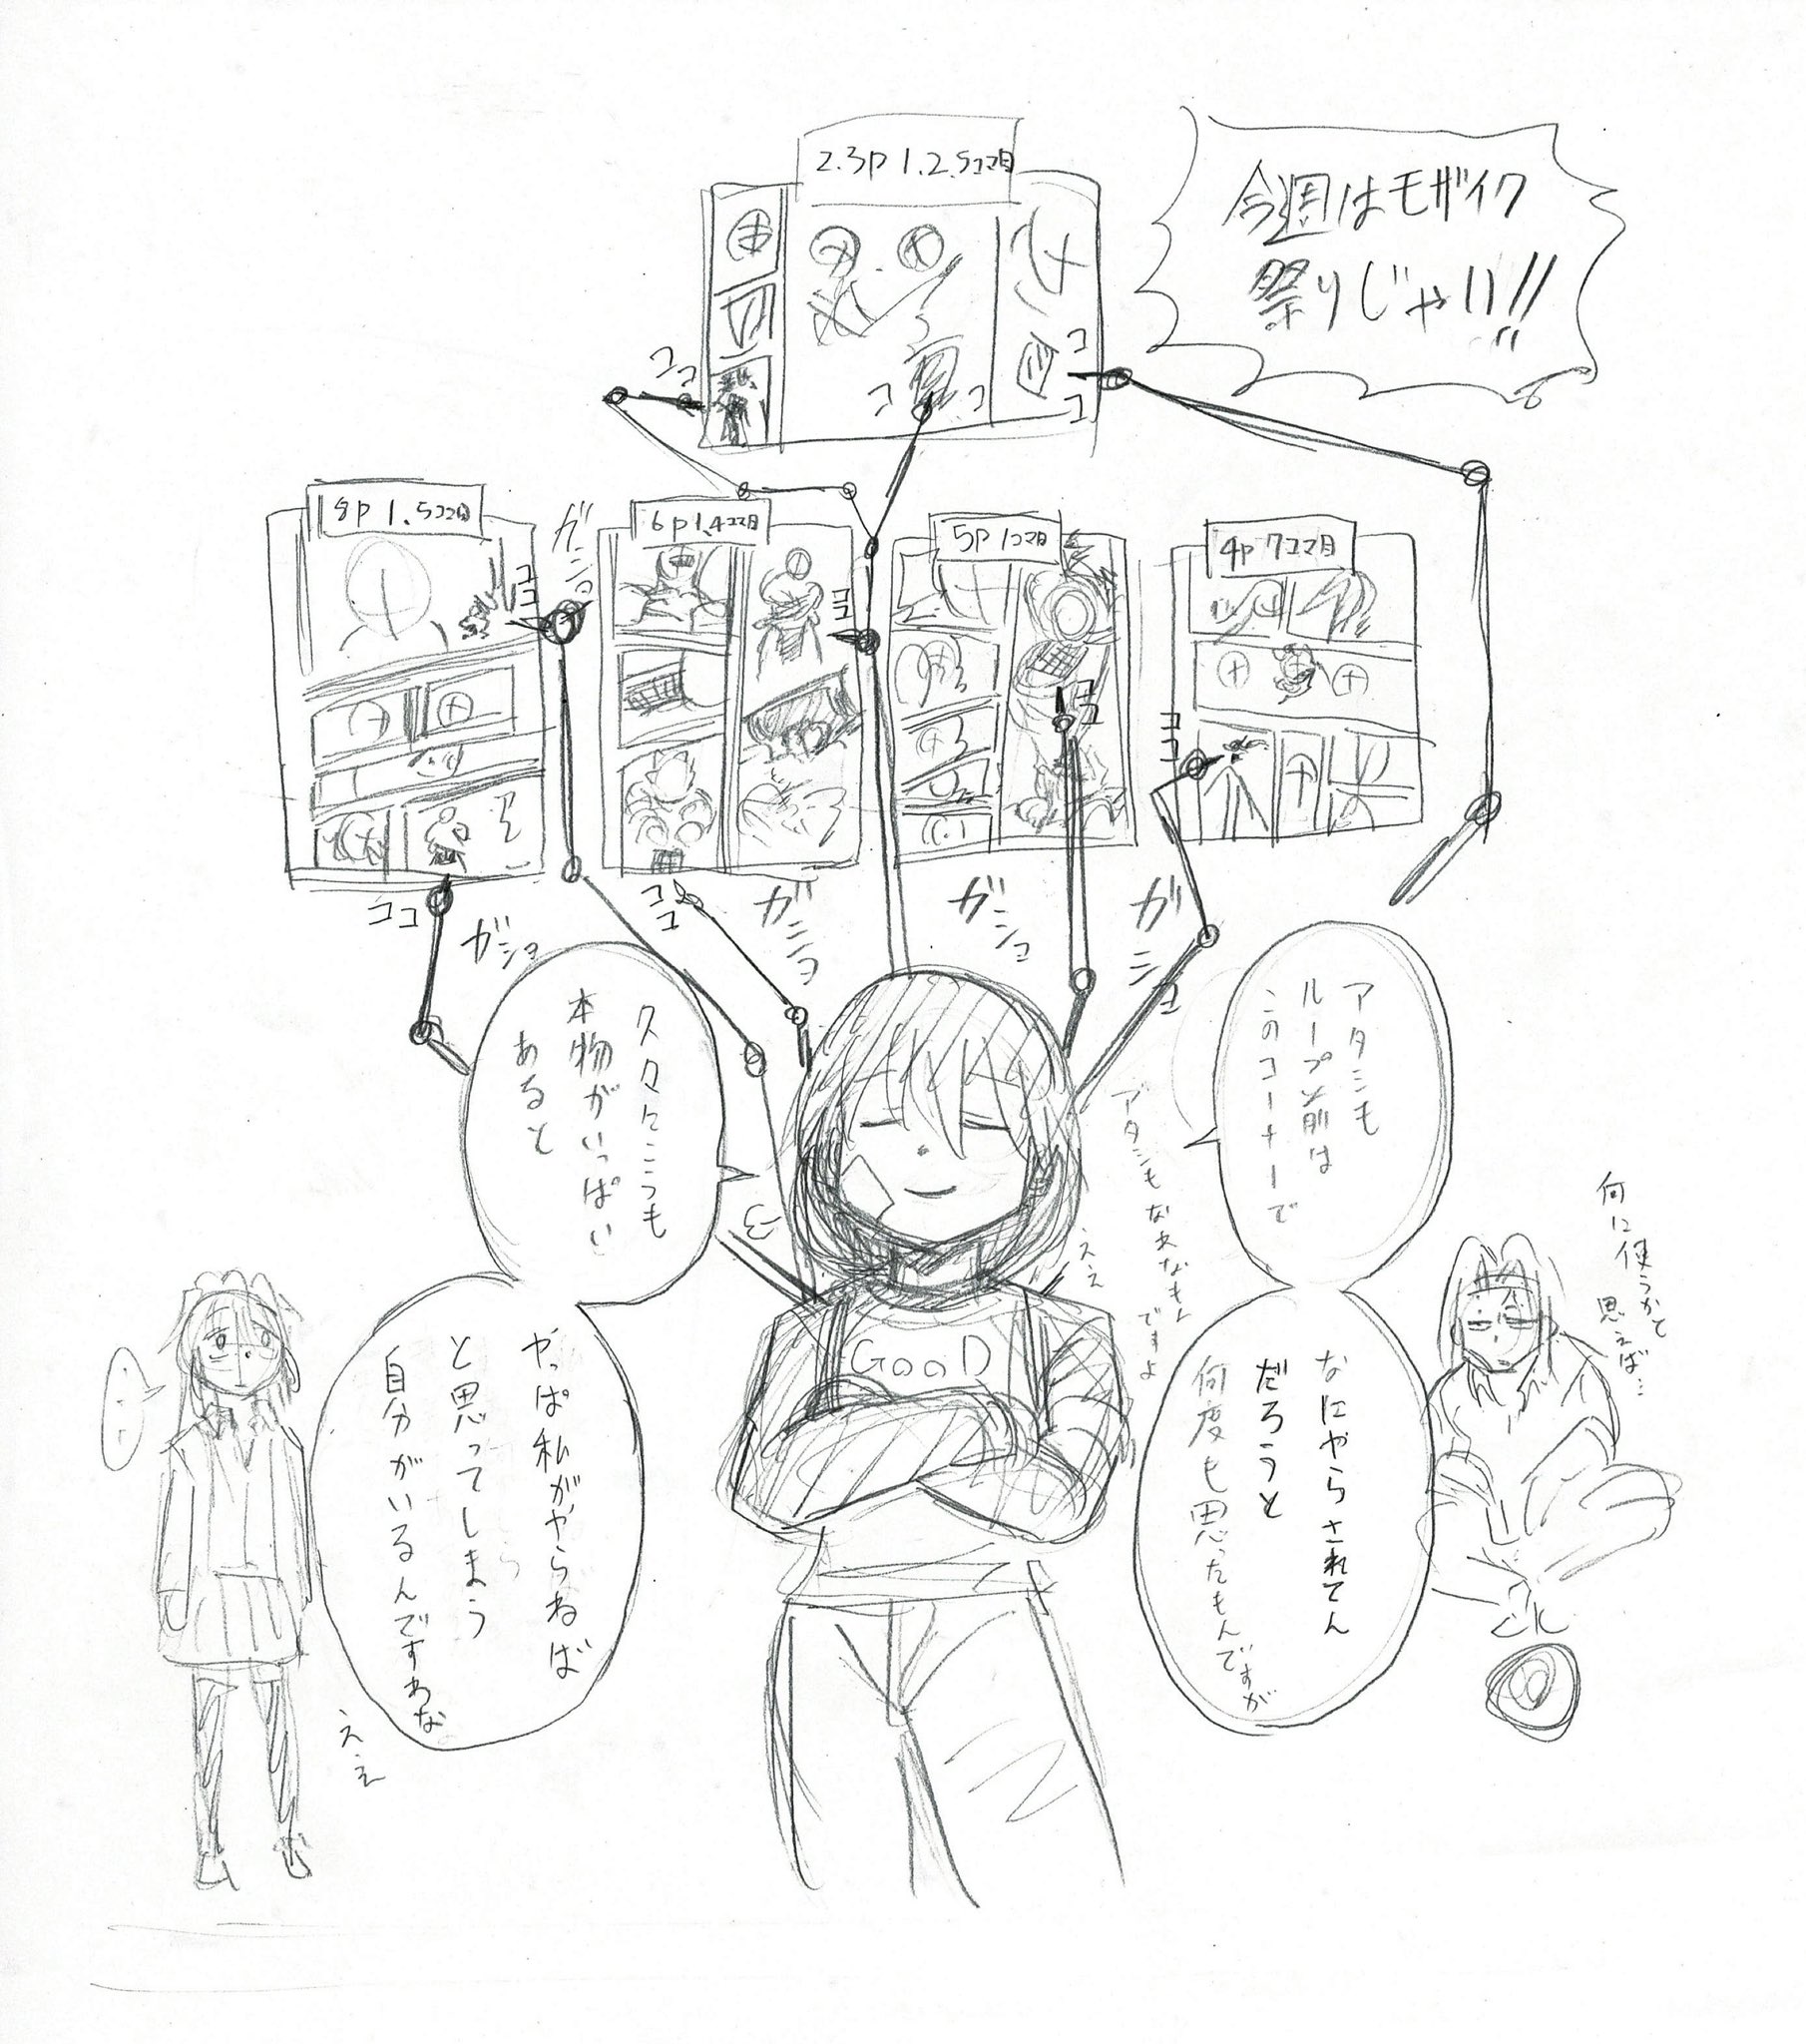 今週はモザイク
祭りじゃい!!
2.3p 1.2.5コマ目
ココ
ココ
ココ
4p 7コマ目
5p 1コマ目
6p 1.4コマ目
8p 1.5コマ目
ガショ
ココ
ココ
ココ
ココ
ココ
ココ
ガショ
ガショ
ガショ
ガショ
アタシも
ループ前は
このコーナーで
なにやらされてん
だろうと
何度も思ったもんですが
アタシもなあなもん
ですよ
ええ
久々にこうも
本物がいっぱい
あると
やっぱ私がやらねば
と思ってしまう
自分がいるんですわな
ええ
GooD
何に使うかと
思えば…
…